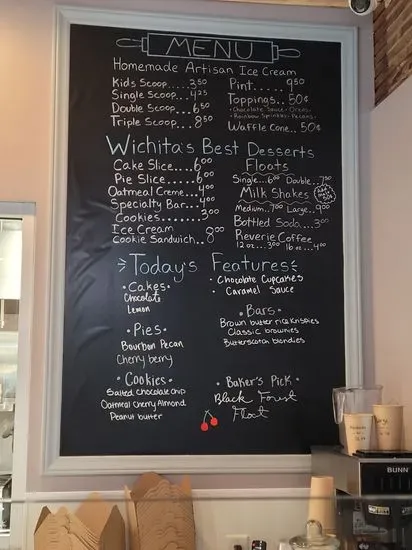 MENU
Homemade Artisan Ice Cream
Kids Scoop....3.50
Single Scoop...4.25
Double Scoop...6.50
Triple Scoop...8.50
Pint.....9.50
Toppings..50¢
•Chocolate Sauce•Oreos•
•Rainbow Sprinkles•Pecans•
Waffle Cone..50¢
Wichita's Best Desserts
Cake Slice....6.00
Pie Slice.....6.00
Oatmeal Creme...4.00
Specialty Bar...4.00
Cookies......3.00
Ice Cream
Cookie Sandwich..8.00
Floats
Single...6.00 Double..7.50
Milk Shakes
Medium..7.00 Large..9.00
Bottled Soda..3.00
Reverie Coffee
12 oz...3.00 16 oz...4.00
Today's Features
•Cakes•
Chocolate
Lemon
•Pies•
Bourbon Pecan
Cherry berry
•Cookies•
Salted Chocolate Chip
Oatmeal Cherry Almond
Peanut butter
• Chocolate Cupcakes
• Caramel Sauce
•Bars•
Brown butter rice Krispies
Classic brownies
Butterscotch blondies
•Baker's Pick•
Black Forest
Float
BUNN